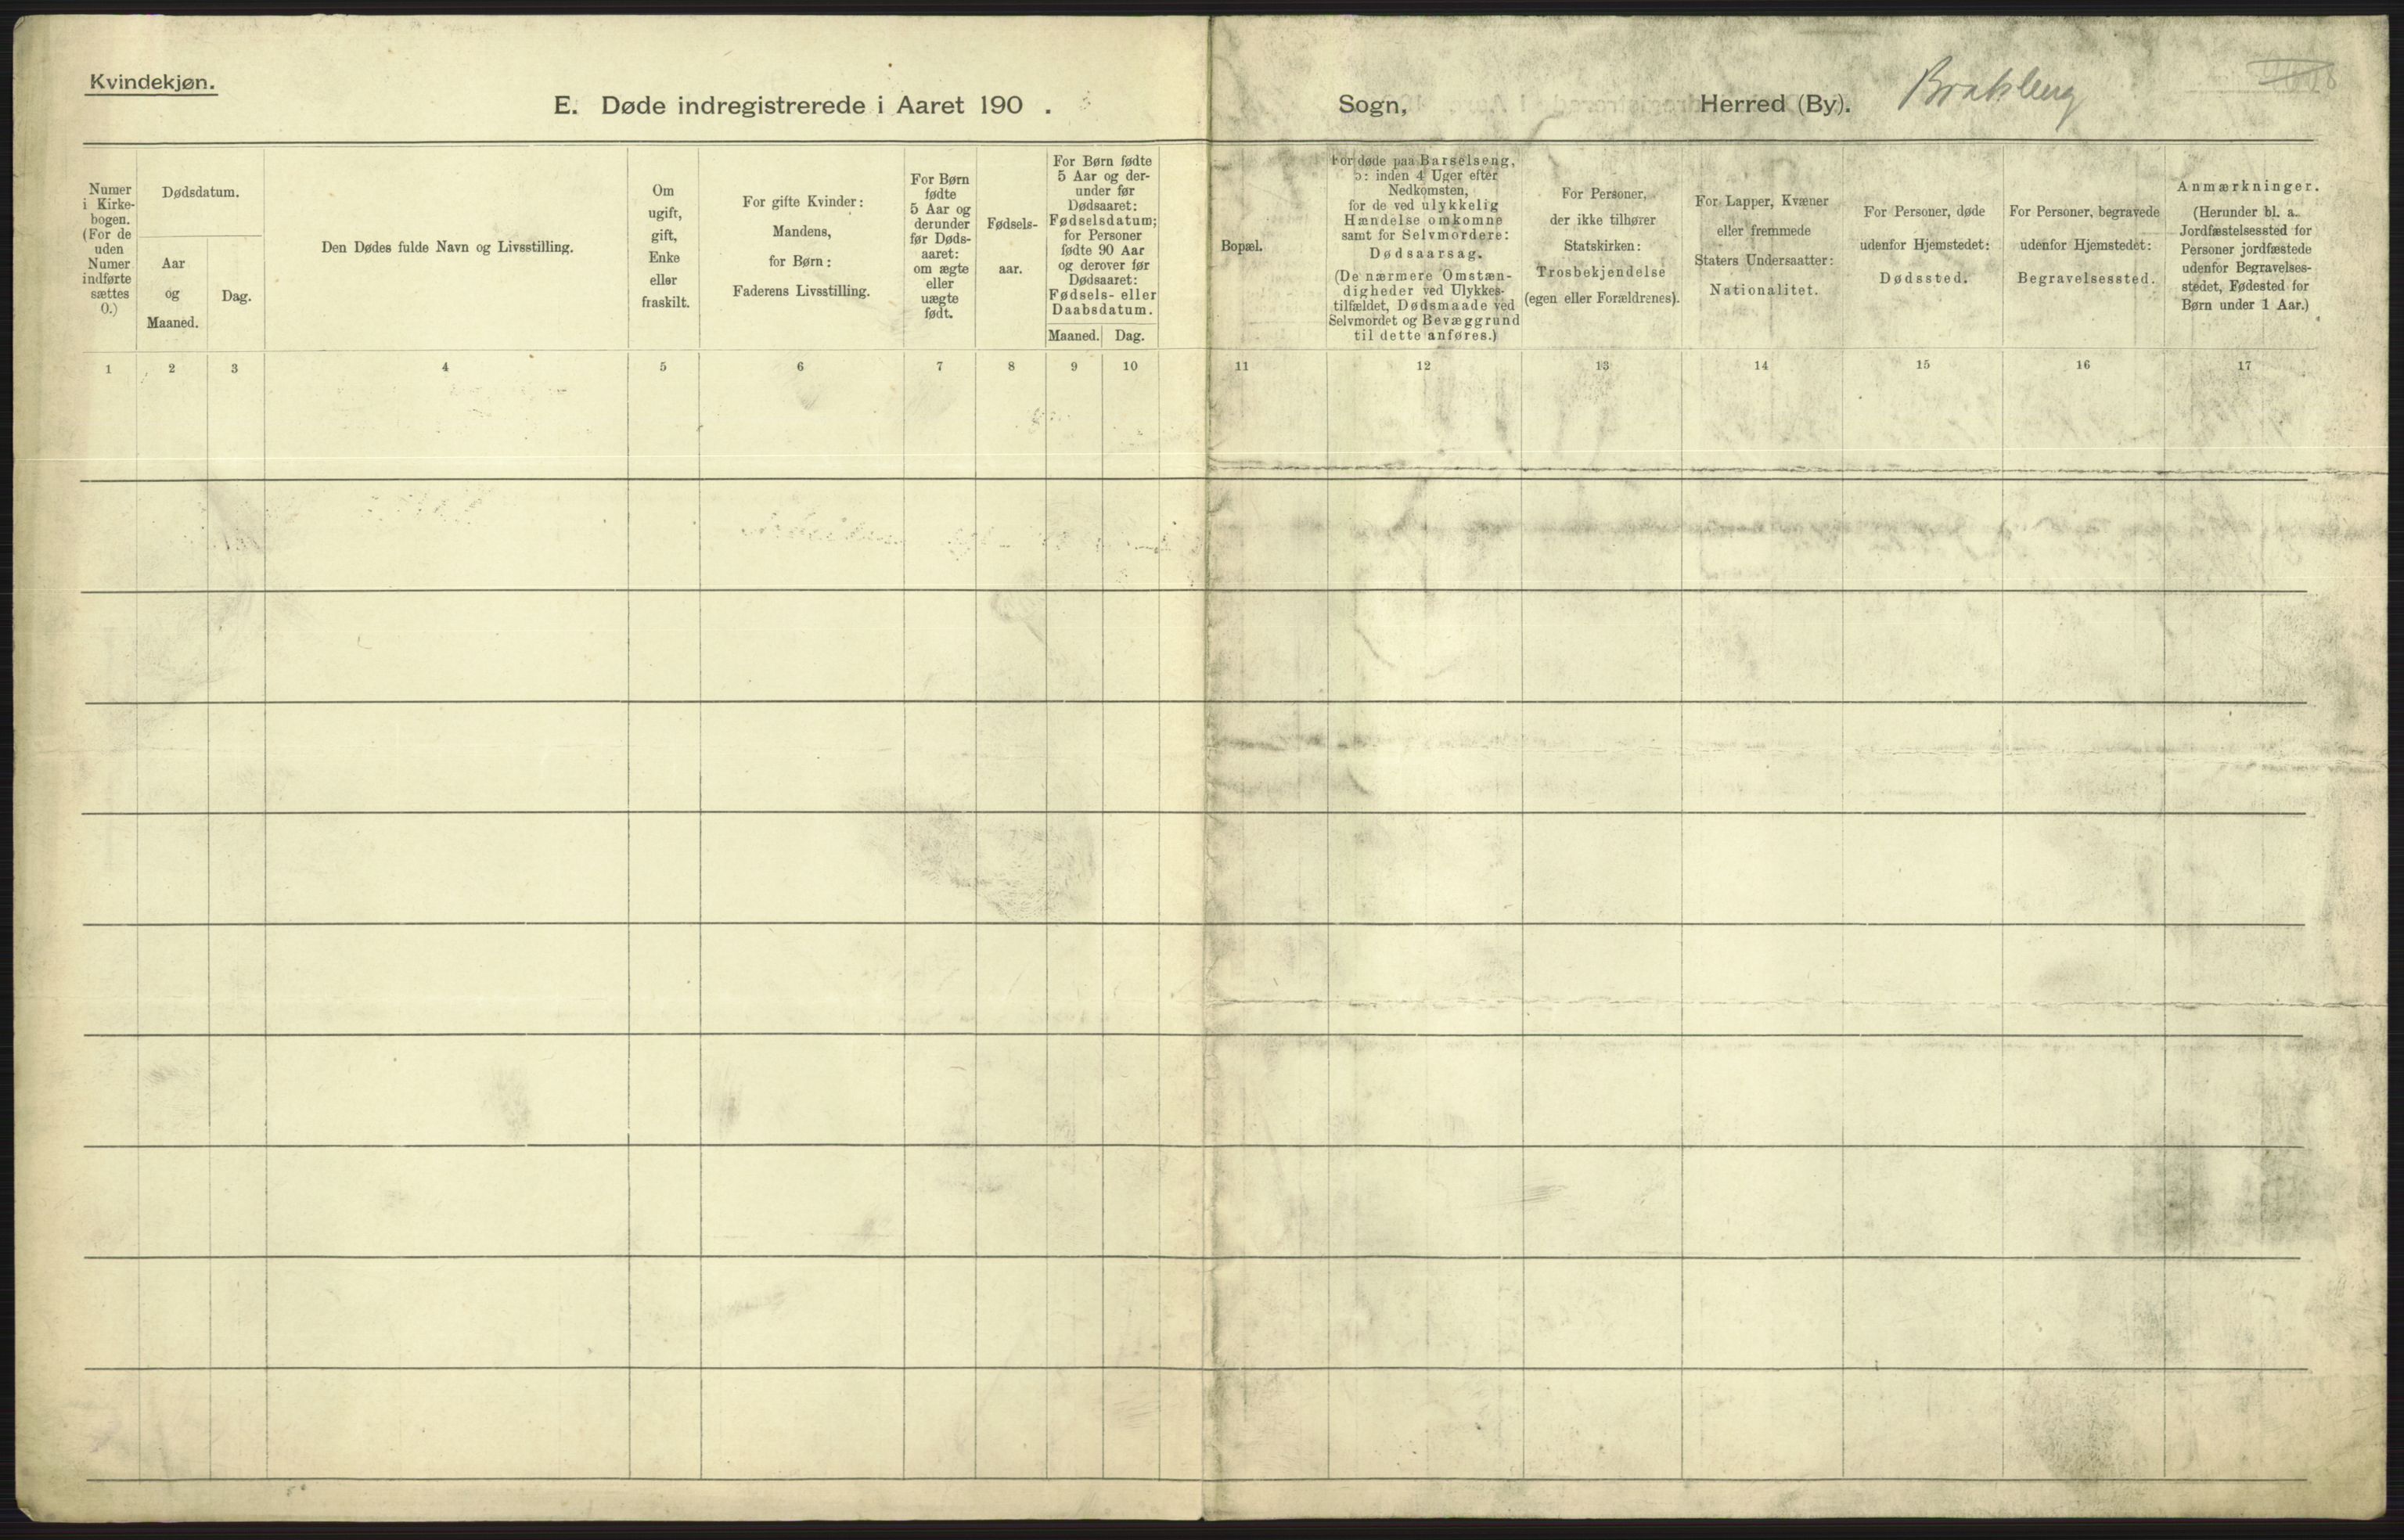 Kvindekjøn.
E. Døde indregistrerede i Aaret 190 .
Sogn,
Herred (By).
Numer
i Kirke-
bogen.
(For de
uden
Numer
indførte
sættes
0.)
Dødsdatum.
Aar
og
Maaned.
Dag.
Den Dødes fulde Navn og Livsstilling.
Om
ugift,
gift,
Enke
eller
fraskilt.
For gifte Kvinder:
Mandens,
for Børn:
Faderens Livsstilling.
For Børn
fødte
5 Aar og
derunder
før Døds-
aaret:
om ægte
eller
uægte
født.
Fødsels-
aar.
For Børn fødte
5 Aar og der-
under før
Dødsaaret:
Fødselsdatum;
for Personer
fødte 90 Aar
og derover før
Dødsaaret:
Fødsels- eller
Daabsdatum.
Maaned. Dag.
Bopæl.
For døde paa Barselseng,
ɔ: inden 4 Uger efter
Nedkomsten,
for de ved ulykkelig
Hændelse omkomne
samt for Selvmordere:
Dødsaarsag.
(De nærmere Omstæn-
digheder ved Ulykkes-
tilfældet, Dødsmaade ved
Selvmordet og Bevæggrund
til dette anføres.)
For Personer,
der ikke tilhører
Statskirken:
Trosbekjendelse
(egen eller Forældrenes).
For Lapper, Kvæner
eller fremmede
Staters Undersaatter:
Nationalitet.
For Personer, døde
udenfor Hjemstedet:
Dødssted.
For Personer, begravede
udenfor Hjemstedet:
Begravelsessted.
Anmærkninger.
(Herunder bl. a.
Jordfæstelsessted for
Personer jordfæstede
udenfor Begravelses-
stedet, Fødested for
Børn under 1 Aar.)
1 2 3 4 5 6 7 8 9 10 11 12 13 14 15 16 17